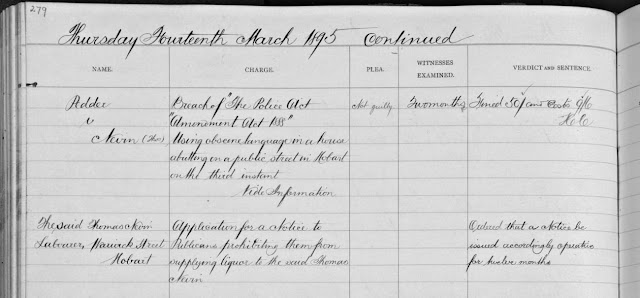 279
Thursday Fourteenth March 1895 Continued
NAME. CHARGE. PLEA. WITNESSES EXAMINED. VERDICT AND SENTENCE.
Peddie Breach of "The Police Act Not guilty Two months Fined 50/ and costs
v "Amendment Act 188"
Nevin (Thos) Using obscene language in a house
abutting on a public street in Hobart
on the third instant
Vide Information
The said Thomas Nevin Application for a Notice to Ordered that a Notice be
Labourer, Warwick Street Publicans prohibiting them from issued accordingly operative
Hobart supplying liquor to the said Thomas for twelve months
Nevin